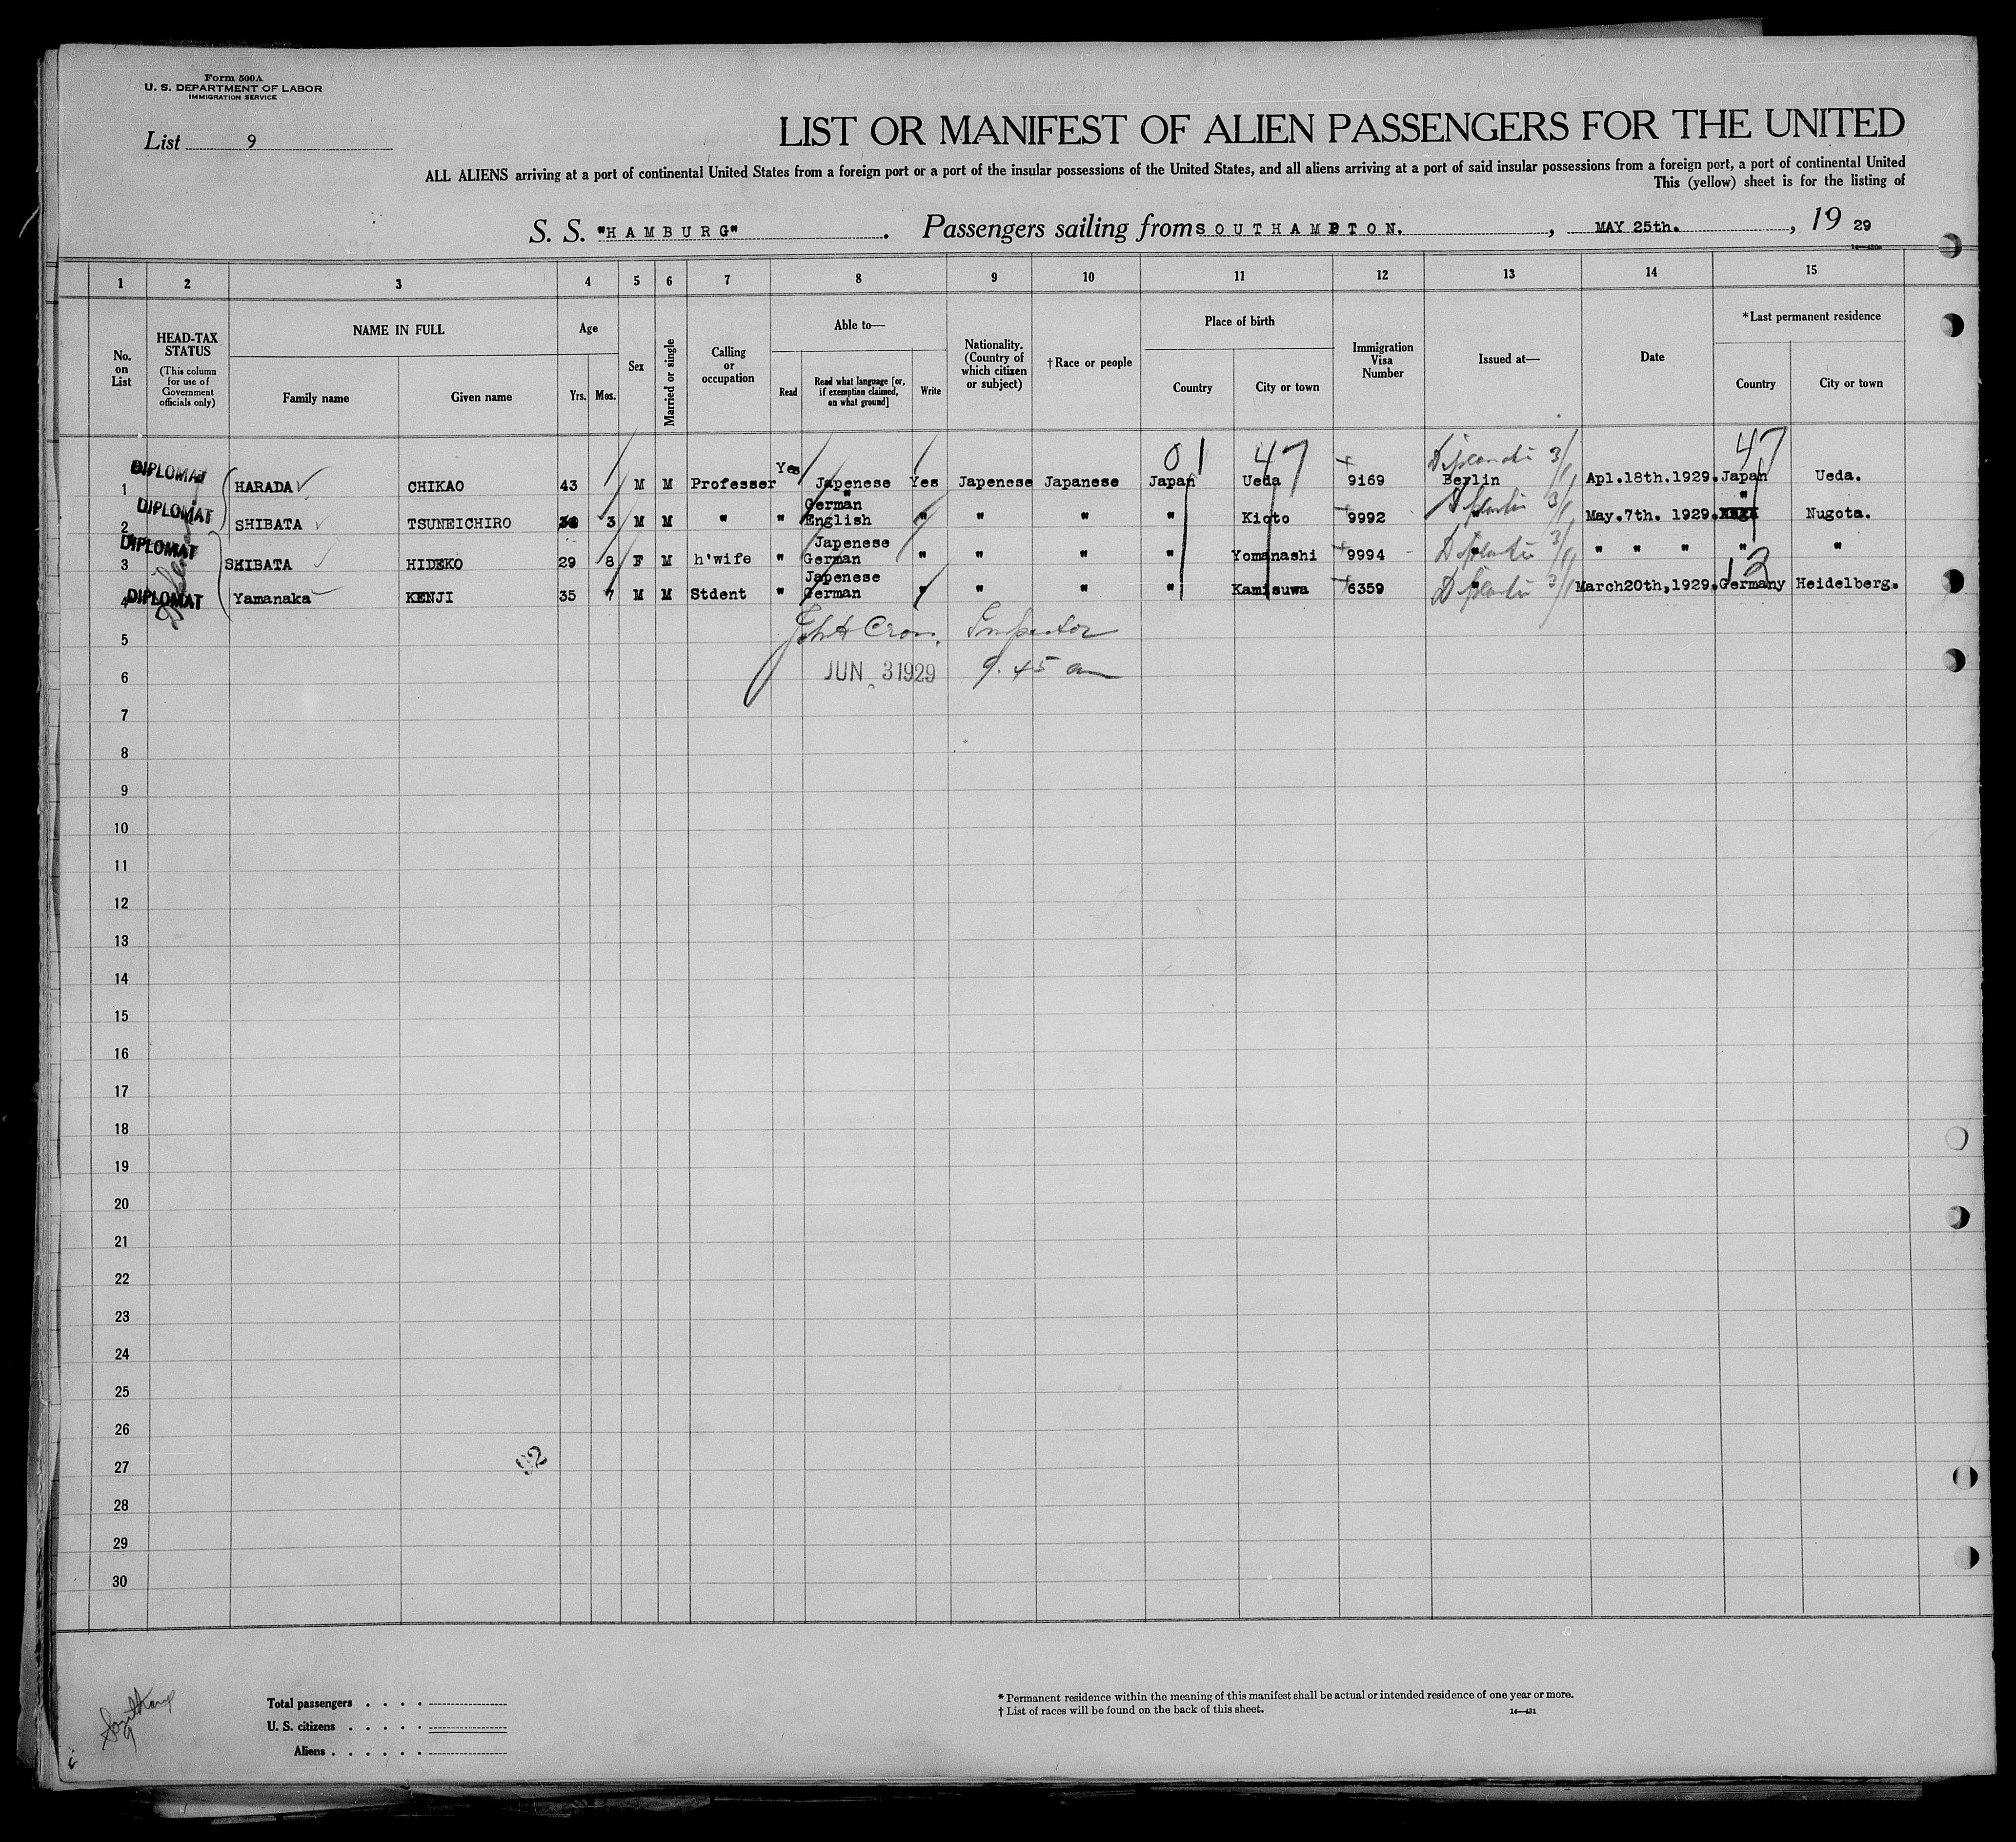 Form 500A
U. S. DEPARTMENT OF LABOR
IMMIGRATION SERVICE
List 9
LIST OR MANIFEST OF ALIEN PASSENGERS FOR THE UNITED
ALL ALIENS arriving at a port of continental United States from a foreign port or a port of the insular possessions of the United States, and all aliens arriving at a port of said insular possessions from a foreign port, a port of continental United
This (yellow) sheet is for the listing of
S. S. "HAMBURG". Passengers sailing from SOUTHAMPTON. , MAY 25th. , 19 29
1 2 3 4 5 6 7 8 9 10 11 12 13 14 15
No. on List
HEAD-TAX STATUS
(This column for use of Government officials only)
NAME IN FULL
Family name Given name
Age
Yrs. Mos.
Sex
Married or single
Calling or occupation
Able to—
Read
Read what language [or, if exemption claimed, on what ground]
Write
Nationality. (Country of which citizen or subject)
†Race or people
Place of birth
Country City or town
Immigration Visa Number
Issued at—
Date
*Last permanent residence
Country City or town
01 47 47
1 DIPLOMAT HARADA CHIKAO 43 M M Professer Yes Japenese " German Yes Japenese Japanese Japan Ueda 9169 Berlin Apl.18th.1929. Japan Ueda.
2 DIPLOMAT SHIBATA TSUNEICHIRO 3 M M " " English " " " " Kioto 9992 " May.7th. 1929. " Nugota.
3 DIPLOMAT SHIBATA HIDEKO 29 8 F M h'wife " Japenese German " " " " Yomanashi 9994 " " " " " "
12
4 DIPLOMAT Yamanaka KENJI 35 7 M M Stdent " Japenese German " " " " Kamisuwa 6359 " March20th,1929. Germany Heidelberg.
5 Inspector
6 JUN 3 1929 9.45 am
7
8
9
10
11
12
13
14
15
16
17
18
19
20
21
22
23
24
25
26
27
92
28
29
30
Total passengers . . . .
U. S. citizens . . . . .
Aliens . . . . . .
* Permanent residence within the meaning of this manifest shall be actual or intended residence of one year or more.
† List of races will be found on the back of this sheet.
14—431